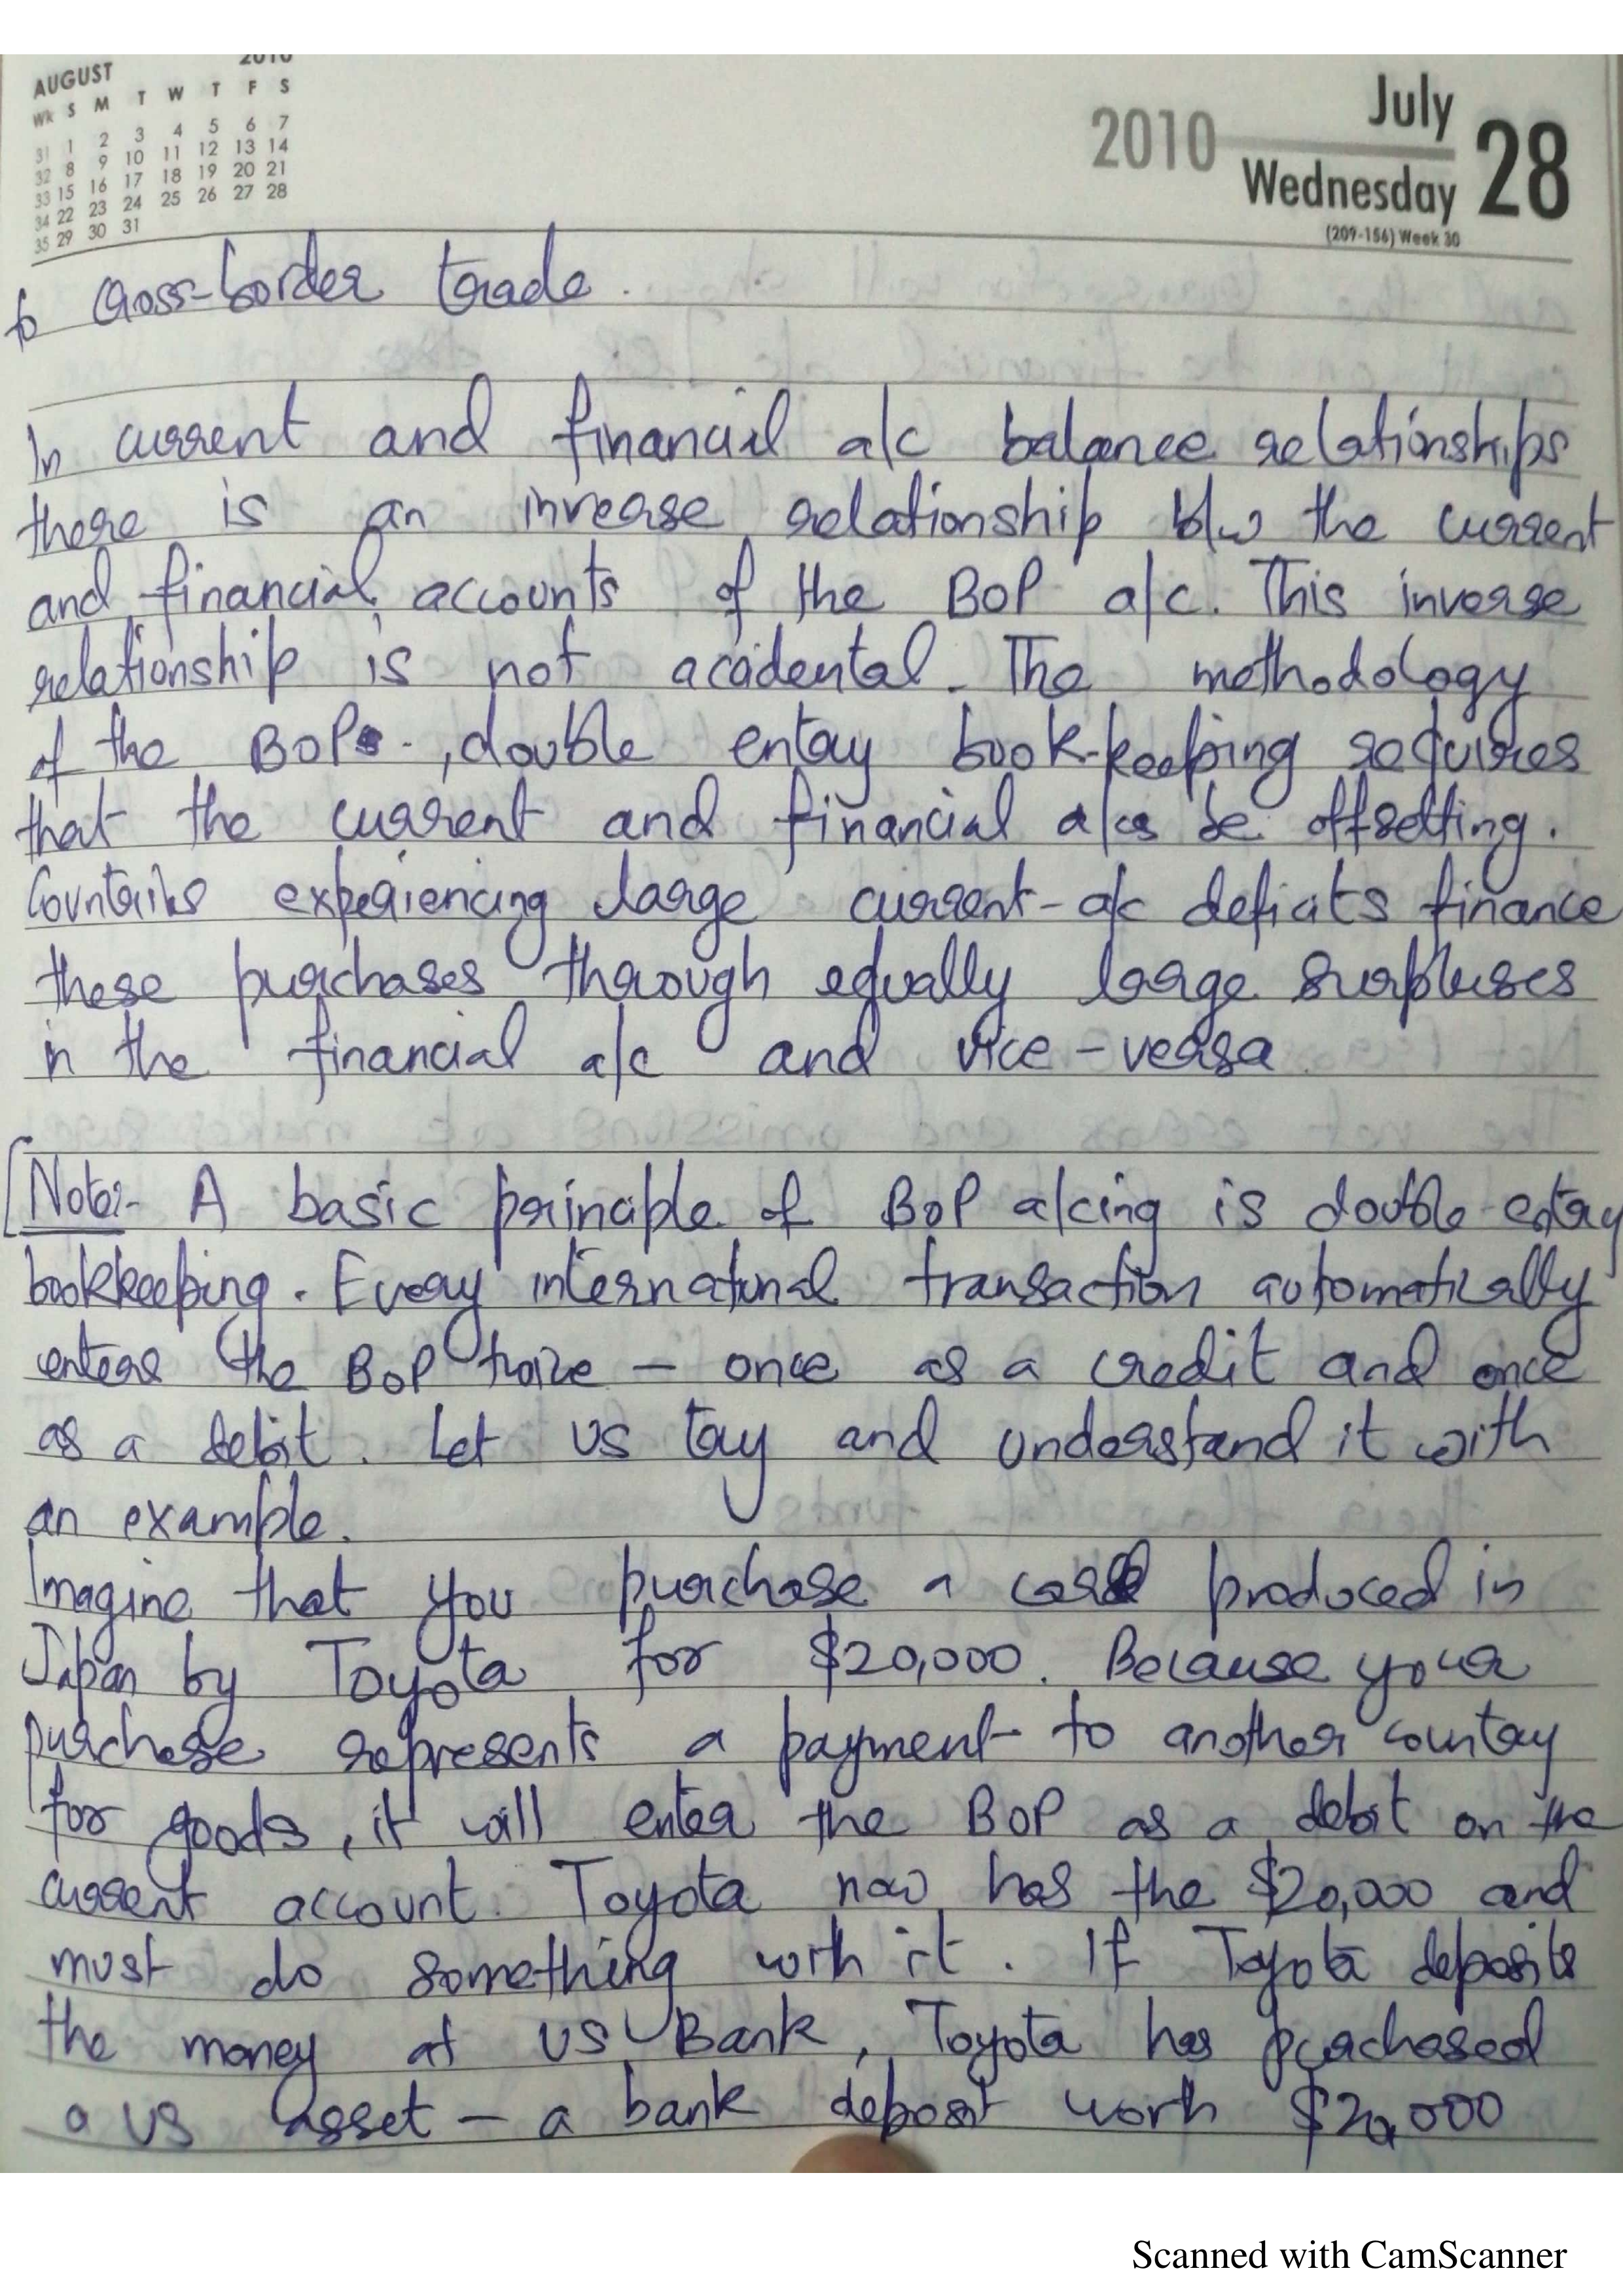 AUGUST 2010
Wk S M T W T F S
31 1 2 3 4 5 6 7
32 8 9 10 11 12 13 14
33 15 16 17 18 19 20 21
34 22 23 24 25 26 27 28
35 29 30 31
2010 July 28
Wednesday
(209-156) Week 30
to Cross-border trade.
In current and financial a/c balance relationships
there is an inverse relationship b/w the current
and financial accounts of the BOP a/c. This inverse
relationship is not accidental. The methodology
of the BOP, double entry book-keeping requires
that the current and financial a/cs be offsetting.
Countries experiencing large current-a/c deficits finance
these purchases through equally large surpluses
in the financial a/c and vice-versa
[Note:- A basic principle of BOP a/cing is double-entry
bookkeeping. Every international transaction automatically
enters the BOP twice - once as a credit and once
as a debit. Let us try and understand it with
an example.
Imagine that you purchase a car produced in
Japan by Toyota for $20,000. Because your
purchase represents a payment to another country
for goods, it will enter the BOP as a debit on the
current account. Toyota now has the $20,000 and
must do something with it. If Toyota deposits
the money at US Bank, Toyota has purchased
a US asset - a bank deposit worth $20,000
Scanned with CamScanner